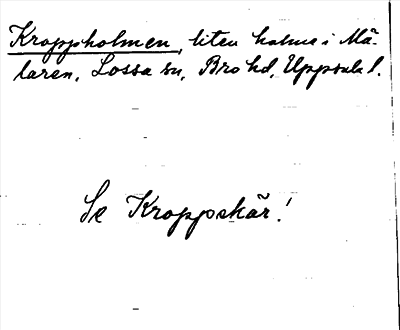 Kroppholmen, liten holme i Mä-
laren, Lossa sn, Bro hd, Uppsala l.
Se Kroppskär!